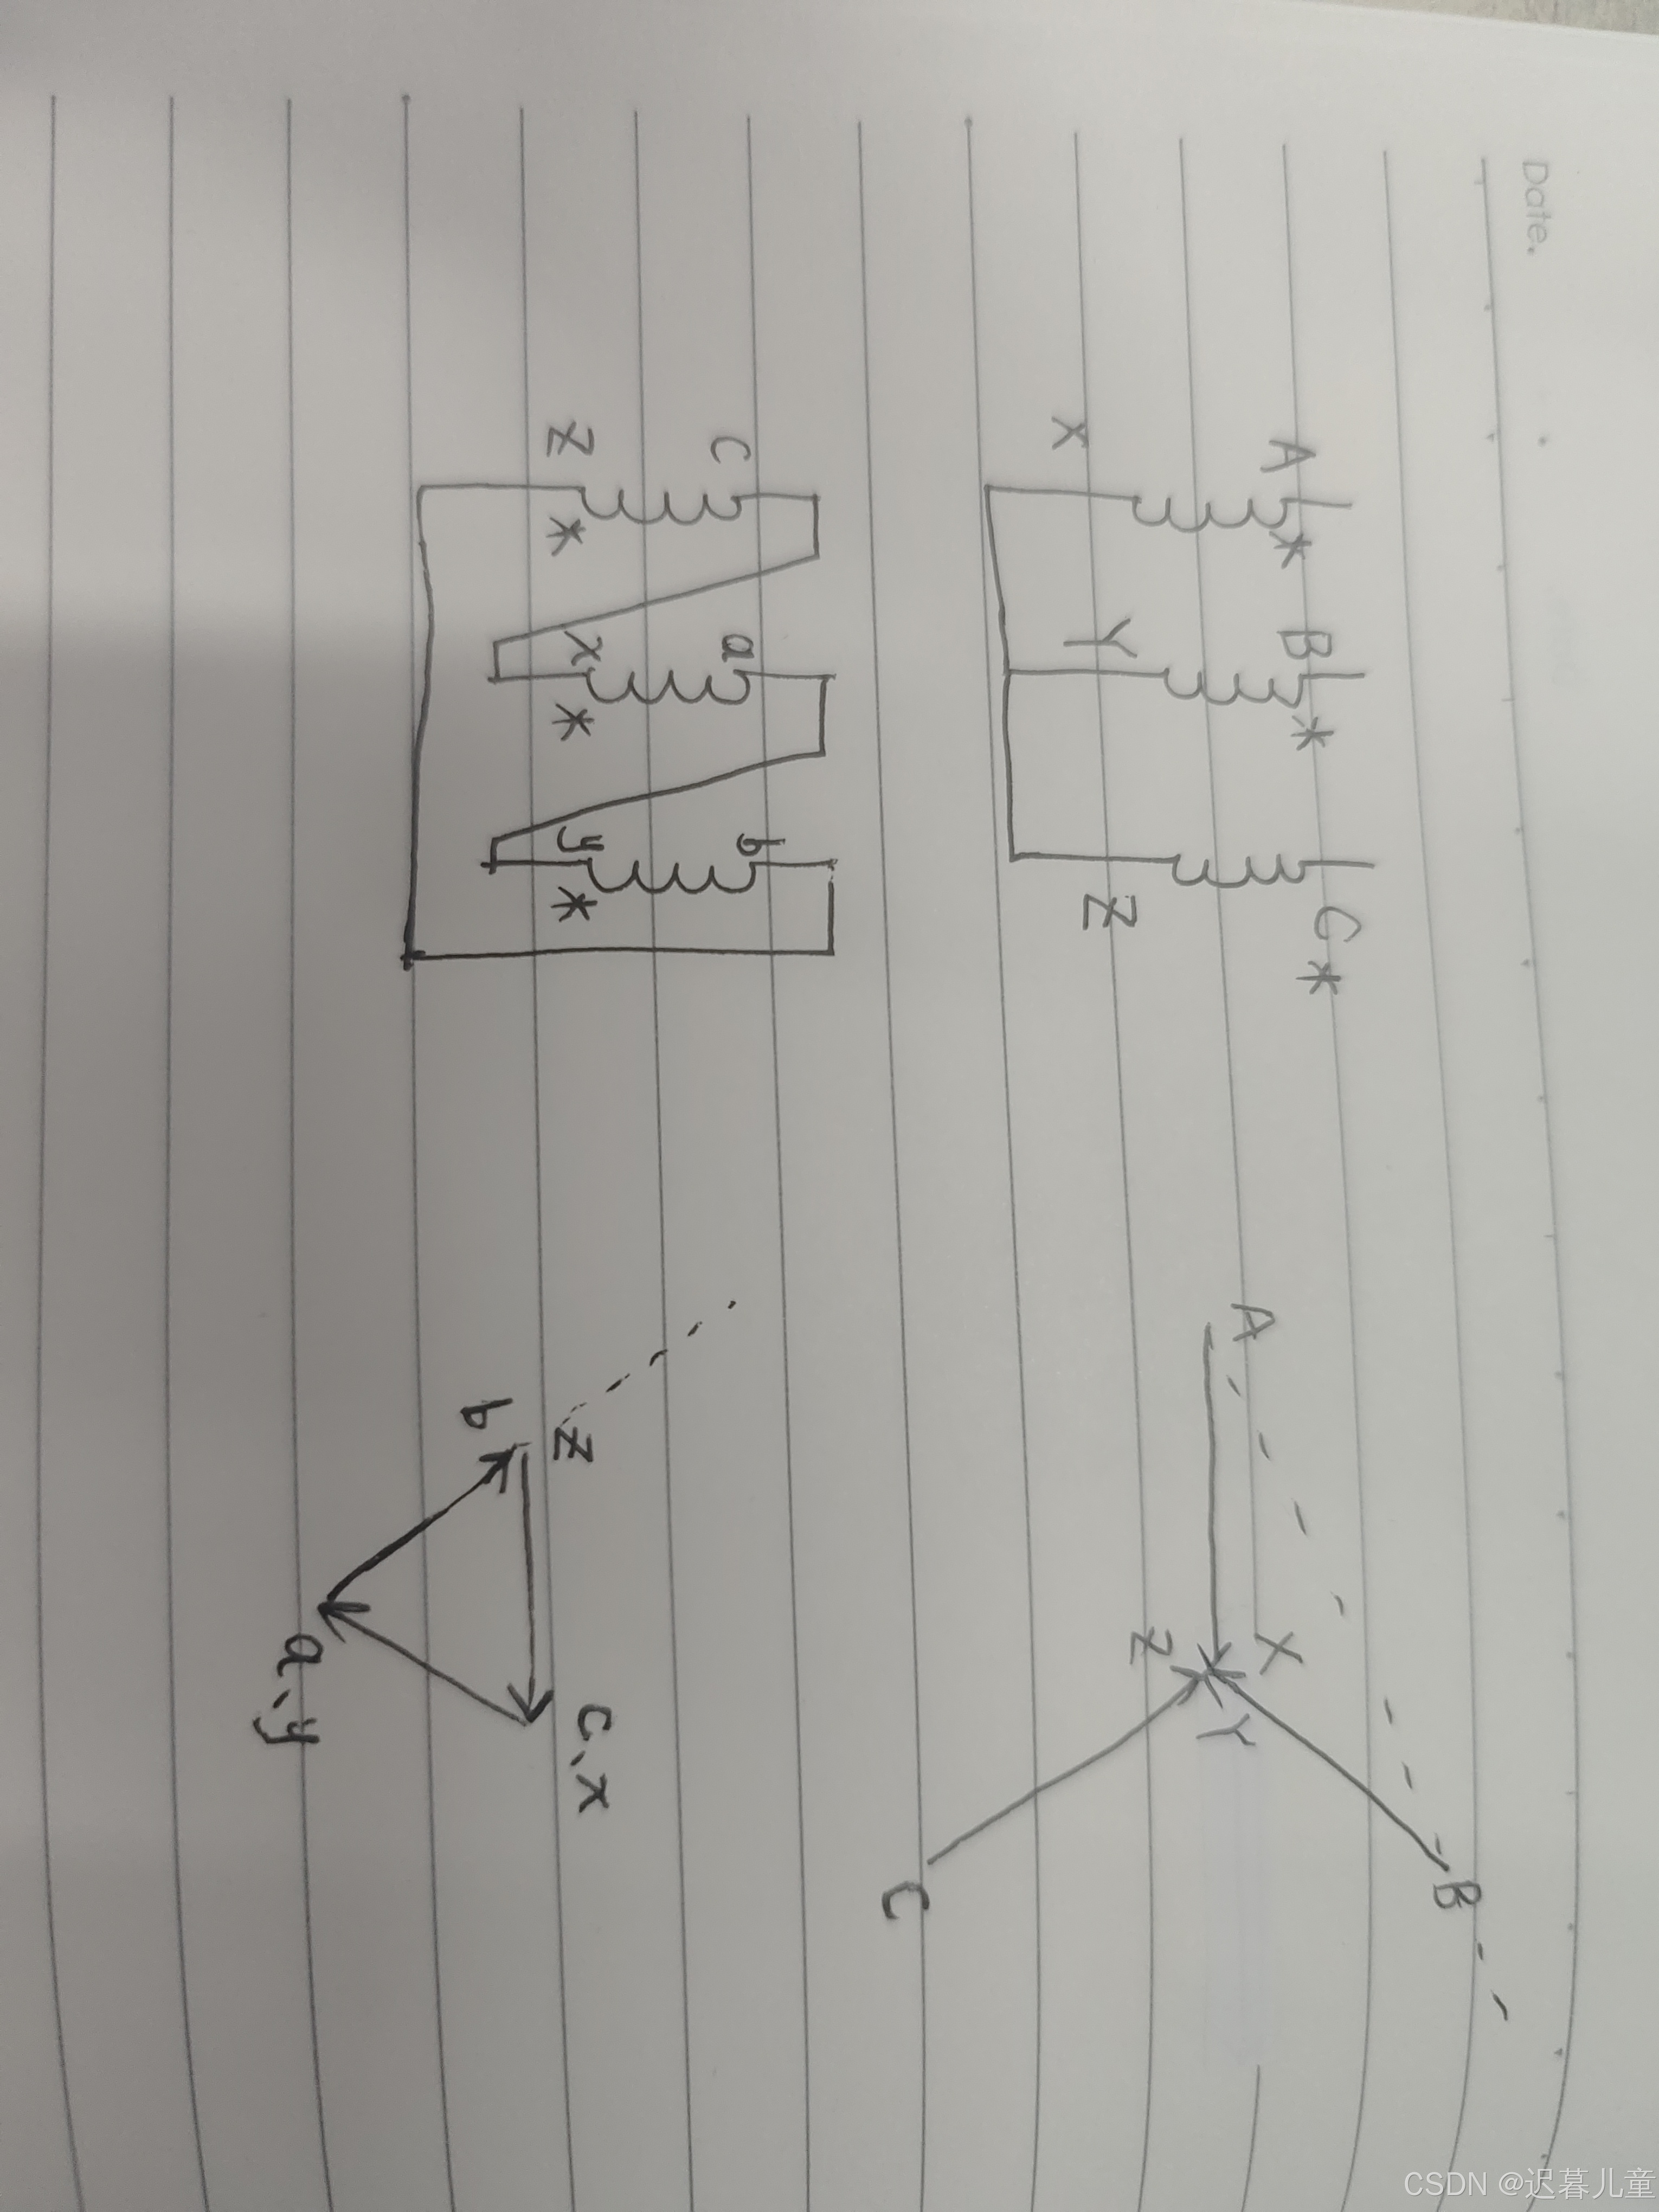 Date.
A * B * C *
X Y Z
c a b
z x y
* * *
A B
X
Z Y
C
z c、x
b
a、y
CSDN @迟暮儿童